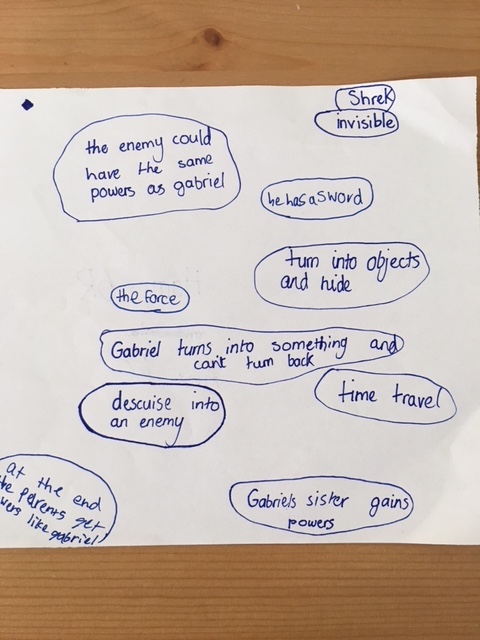 Shrek
invisible
the enemy could
have the same
powers as gabriel
he has a sword
turn into objects
and hide
the Force
Gabriel turns into something and
can't turn back
time travel
descuise into
an enemy
at the end
the parents get
wers like gabriel
Gabriels sister gains
powers